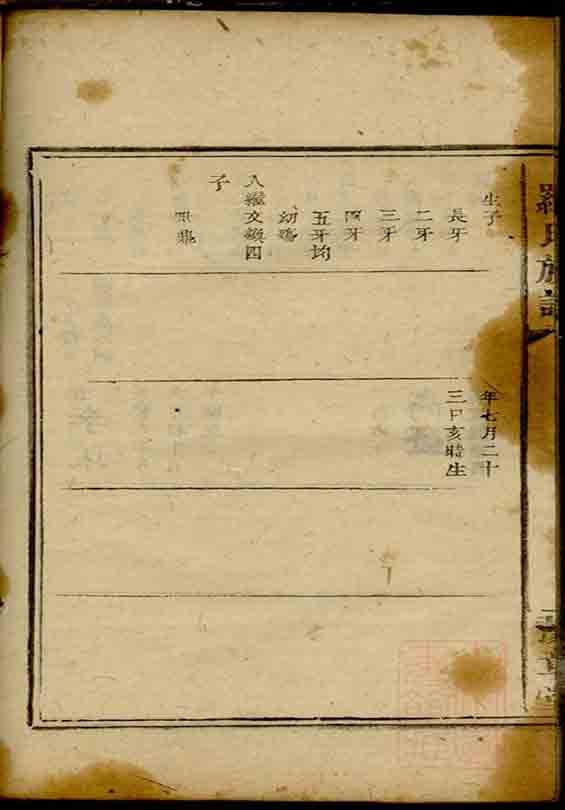 羅氏族譜
生子
長牙
二牙
三牙
四牙
五牙均
幼殤
入繼文
四
子
年七月二十
三日亥時生